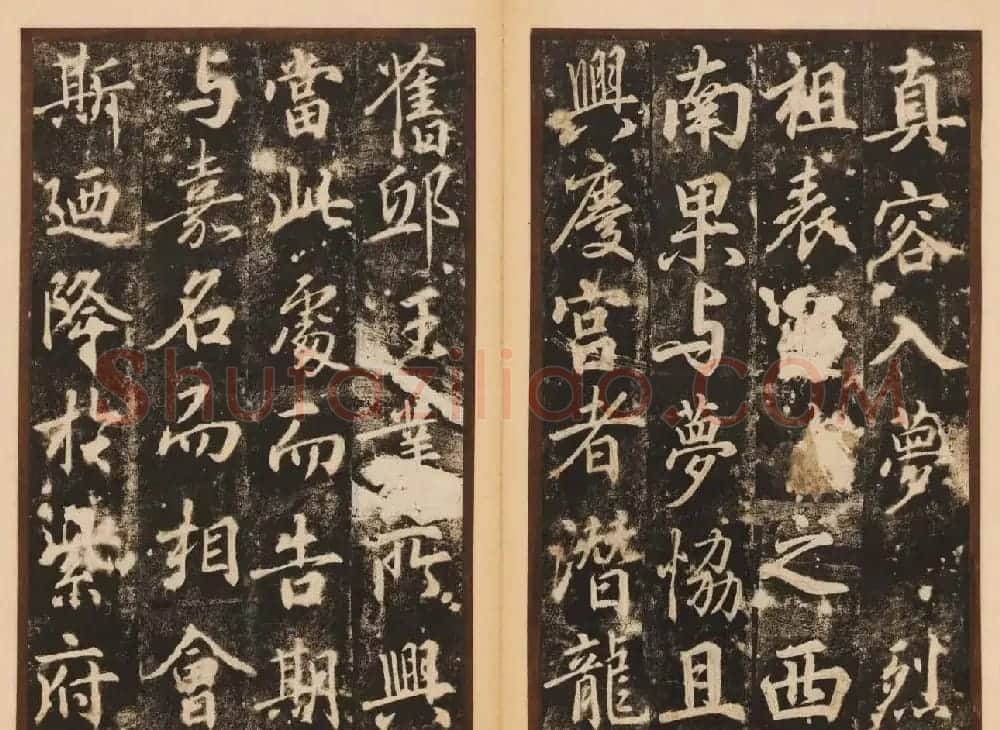 真容入夢烈
祖表之西
南果与夢協且
興慶宮者潛龍
舊邸王業所興
當此處而告期
与嘉名而相會
斯迺降於紫府
Shufaziliao.COM